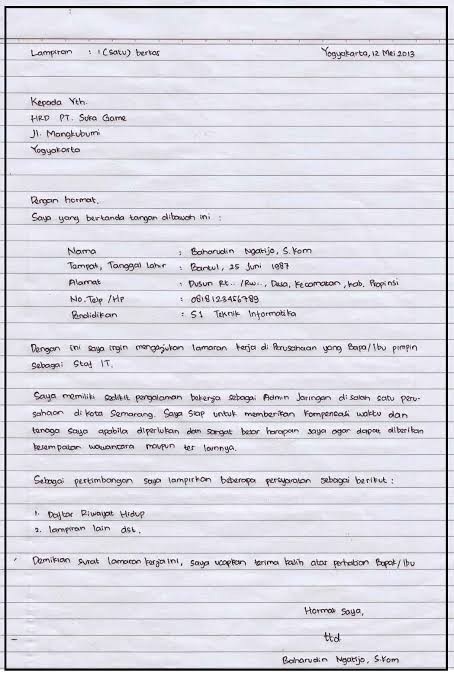 Lampiran : 1 (satu) berkas Yogyakarta, 12 Mei 2013
Kepada Yth.
HRD PT. Suka Game
Jl. Mangkubumi
Yogyakarta
Dengan hormat,
Saya yang bertanda tangan dibawah ini :
Nama : Baharudin Ngatijo, S.Kom
Tempat, Tanggal Lahir : Bantul, 25 Juni 1987
Alamat : Dusun Rt.. /Rw.., Desa, Kecamatan, Kab. Propinsi
No. Telp /HP : 0818123456789
Pendidikan : S1 Teknik Informatika
Dengan ini saya ingin mengajukan lamaran kerja di Perusahaan yang Bapa/Ibu pimpin
sebagai Staf IT.
Saya memiliki sedikit pengalaman bekerja sebagai Admin Jaringan di salah satu peru-
sahaan di kota Semarang. Saya siap untuk memberikan kompensasi waktu dan
tenaga saya apabila diperlukan dan sangat besar harapan saya agar dapat diberikan
kesempatan wawancara maupun tes lainnya.
Sebagai pertimbangan saya lampirkan beberapa persyaratan sebagai berikut :
1. Daftar Riwayat Hidup
2. lampiran lain dst.
Demikian surat lamaran kerja ini, saya ucapkan terima kasih atas perhatian Bapak/Ibu
Hormat Saya,
ttd
Baharudin Ngatijo, S.Kom